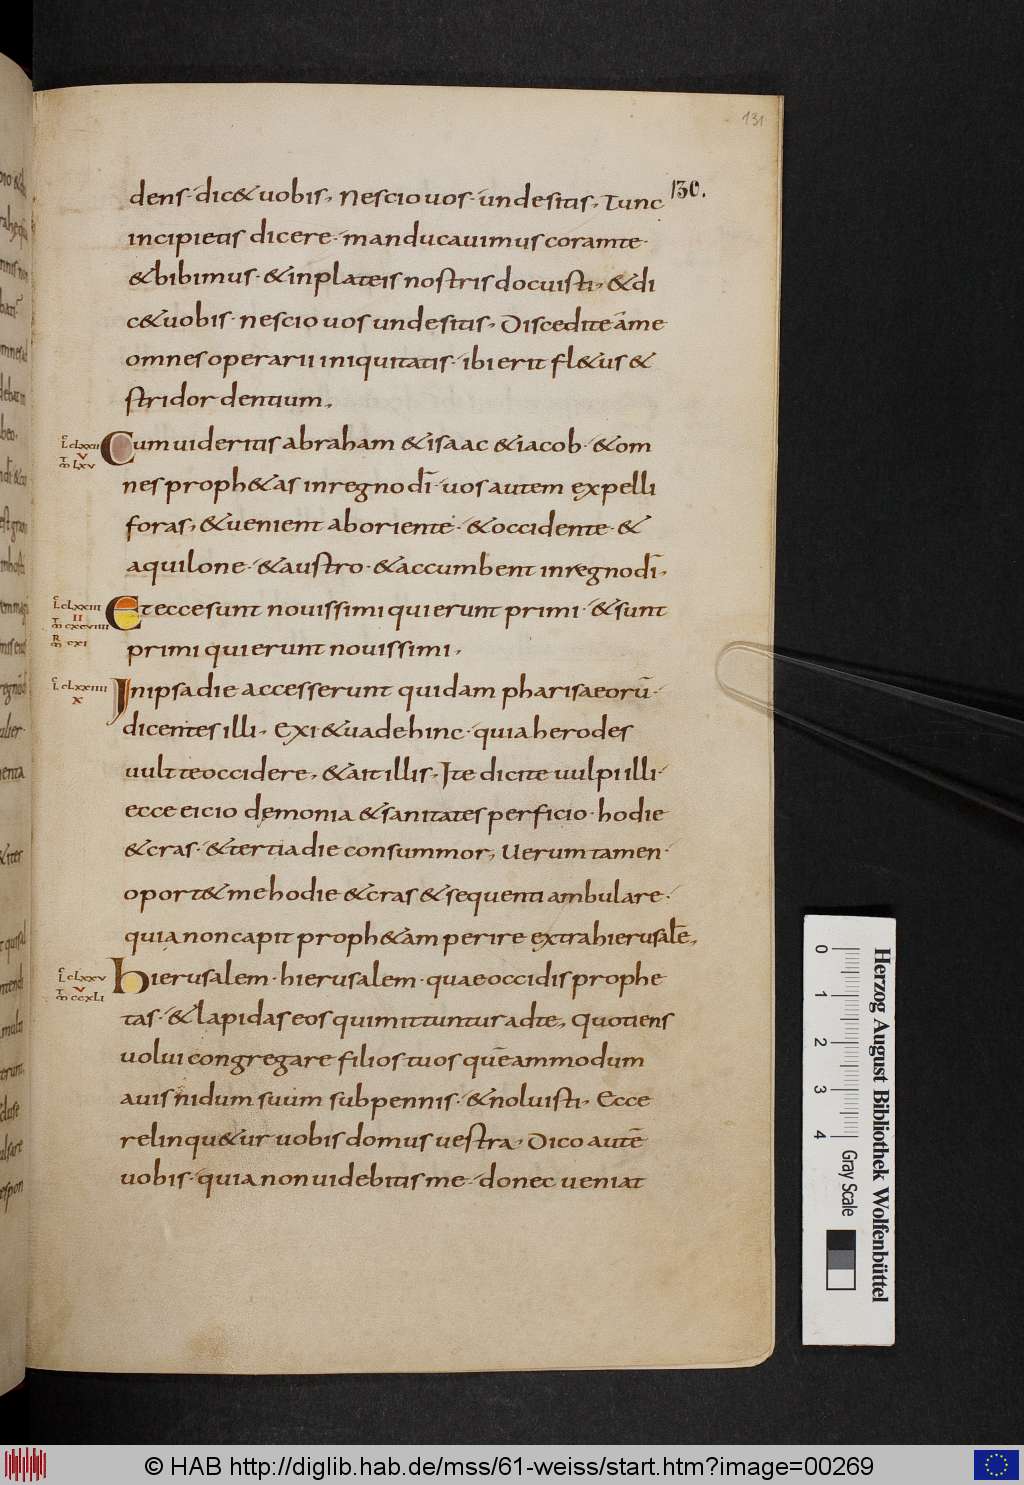 131
130.
dens· dic& uobis, Nescio uos· unde sitis, Tunc
incipietis dicere· manducauimus coram te·
& bibimus· & in plateis nostris docuisti, & di
c& uobis· nescio uos unde sitis, Discedite a me
omnes operarii iniquitatis· ibi erit fl&us &
stridor dentium,
Cum uideritis abraham & isaac & iacob· & om
nes proph&as in regno dī· uos autem expelli
foras, & uenient ab oriente· & occidente· &
aquilone· & austro· & accumbent in regno dī,
Et ecce sunt nouissimi qui erunt primi· & sunt
primi qui erunt nouissimi,
In ipsa die accesserunt quidam pharisaeorū·
dicentes illi, Exi· & uade hinc· quia herodes
uult te occidere, & ait illis, Ite dicite uulpi illi·
ecce eicio dęmonia & sanitates perficio· hodie
& cras· & tertia die consummor, Uerum tamen·
oport& me hodie & cras & sequenti ambulare·
quia non capit proph&am perire extra hierusalē,
Hierusalem· hierusalem· quae occidis prophe
tas· & lapidas eos qui mittuntur ad te, Quotiens
uolui congregare filios tuos quēammodum
auis nidum suum sub pennis· & noluisti, Ecce
relinqu&ur uobis domus uestra, Dico autē
uobis· quia non uidebitis me· donec ueniat
L CLXXII
V
LXV
L CLXXIII
II
CXCVIIII
R CXI
L CLXXIIII
X
L CLXXV
V
CCXLI
0 1 2 3 4
Gray Scale
Herzog August Bibliothek Wolfenbüttel
© HAB http://diglib.hab.de/mss/61-weiss/start.htm?image=00269